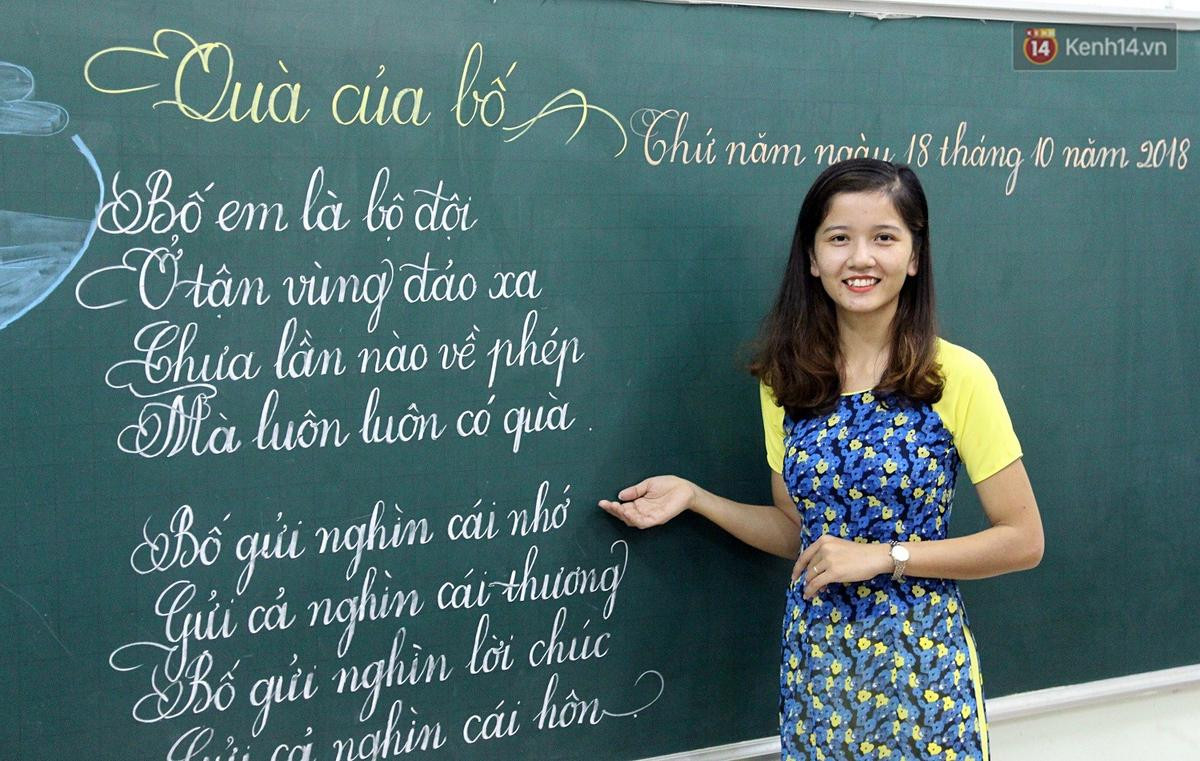 14 Kenh14.vn
Quà của bố
Thứ năm ngày 18 tháng 10 năm 2018
Bố em là bộ đội
Ở tận vùng đảo xa
Chưa lần nào về phép
Mà luôn luôn có quà.
Bố gửi nghìn cái nhớ
Gửi cả nghìn cái thương
Bố gửi nghìn lời chúc
Gửi cả nghìn cái hôn